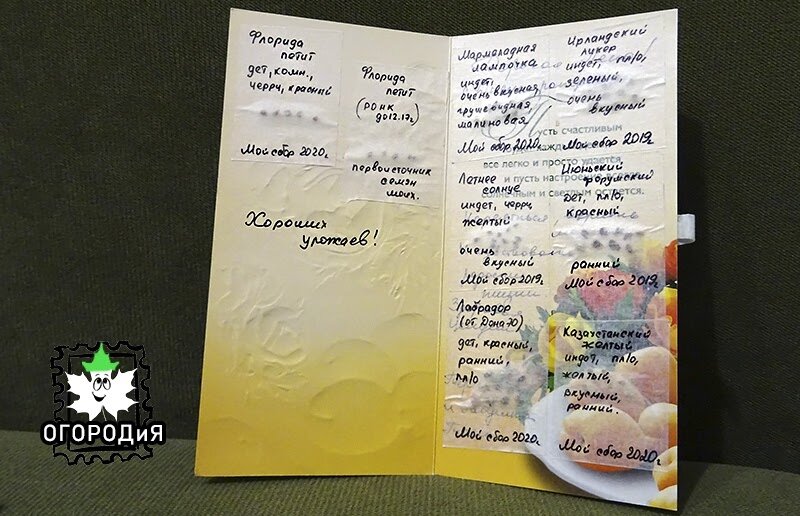 Флорида
петит
дет, комн.,
черри, красный
Мой сбор 2020г.
Флорида
петит
(РОНК
до 12.17г.)
первоисточник
семян
моих.
Хороших
урожаев!
Мармеладная
лампочка
индет,
очень вкусная,
грушевидная,
малиновая
Мой сбор 2020г.
Ирландский
ликер
индет, пл/о,
зеленый,
очень
вкусный
Мой сбор 2019г.
Пусть счастливым
все легко и просто удается,
и пусть настроение
солнечным и светлым остается.
Летнее
солнце
индет, черри,
желтый
очень
вкусный
Мой сбор 2019г.
Июньский
форумский
дет, пл/о,
красный
ранний
Мой сбор 2019г.
Лабрадор
(от Дона 70)
дет, красный,
ранний,
пл/о
Мой сбор 2020г.
Казахстанский
желтый
индет, пл/о,
желтый,
вкусный,
ранний.
Мой сбор 2020г.
ОГОРОДиЯ